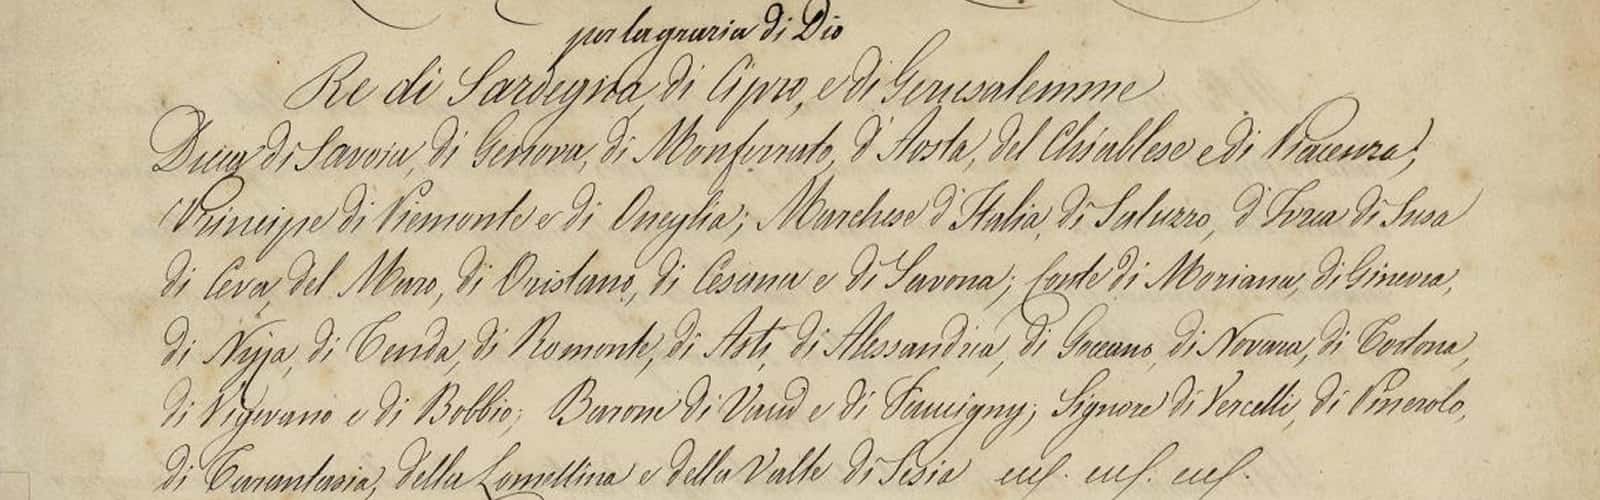 per la grazia di Dio
Re di Sardegna, di Cipro, e di Gerusalemme
Duca di Savoia, di Genova, di Monferrato, d'Aosta, del Chiablese e di Piacenza;
Principe di Piemonte e di Oneglia; Marchese d'Italia, di Saluzzo, d'Ivrea di Susa
di Ceva, del Maro, di Oristano, di Cesana e di Savona; Conte di Moriana, di Ginevra,
di Nizza, di Tenda, di Romonte, di Asti, di Alessandria, di Goceano, di Novara, di Tortona,
di Vigevano e di Bobbio; Barone di Vaud e di Faucigny; Signore di Vercelli, di Pinerolo,
di Tarantasia, della Lomellina e della Valle di Sesia ecc. ecc. ecc.